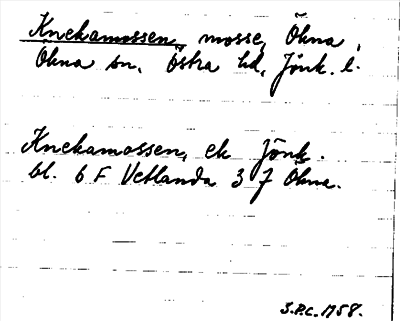 Knekamossen, mosse, Ökna,
Ökna sn, Östra hd, Jönk. l.
Knekamossen, ek Jönk.
bl. 6 F Vetlanda 3 J Ökna.
S.P.C. 1958.